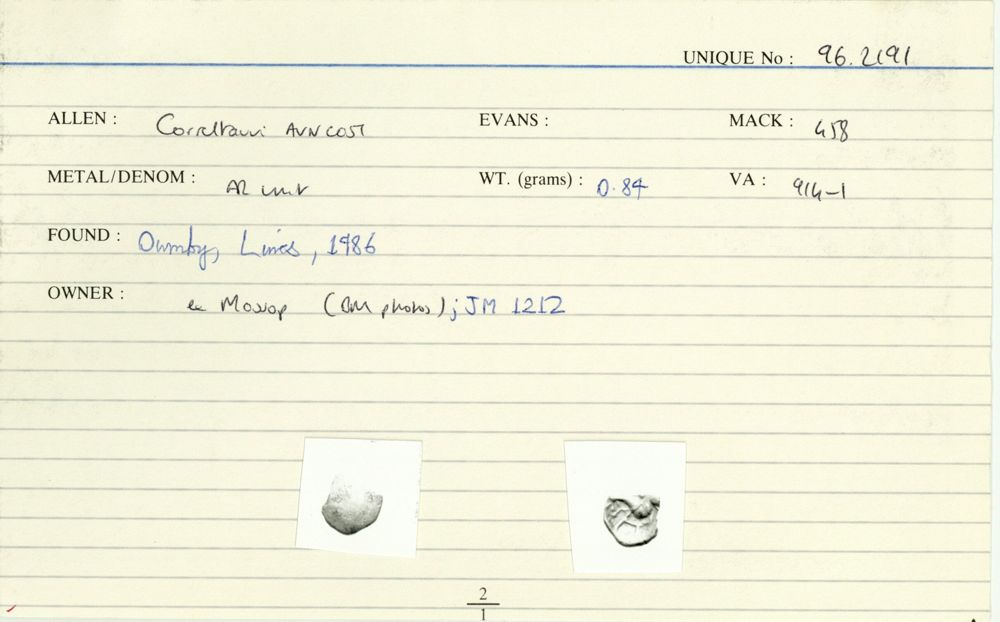 UNIQUE No : 96.2191
ALLEN : Corieltauvi AVN COST EVANS : MACK : 458
METAL/DENOM : AR unit WT. (grams) : 0.84 VA : 914-1
FOUND : Owmby, Lincs, 1986
OWNER : ex Mossop (BM photos); JM 1212
2
1